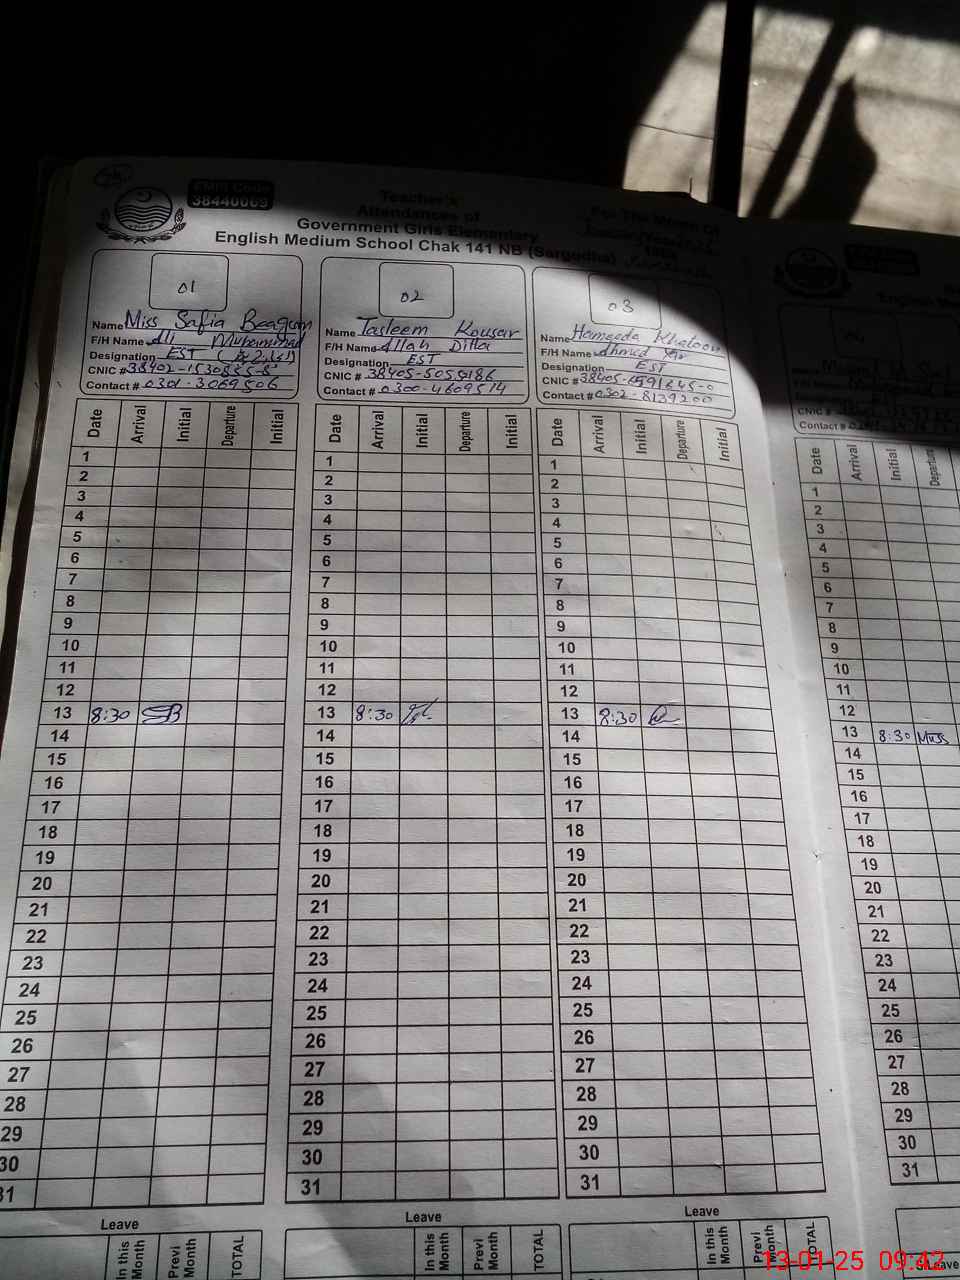 EMIS Code
38440069
Teacher's
Attendances of
Government Girls Elementary
English Medium School Chak 141 NB (Sargodha)
For The Month Of
01
Name Miss Safia Beagum
F/H Name Ali Muhammad
Designation EST
CNIC #
Contact # 0301-3069506
02
Name Tasleem Kousar
F/H Name Allah Ditta
Designation EST
CNIC # 38405-5055186
Contact # 0300-4609514
03
Name Hameeda Khatoon
F/H Name Ahmad Yar
Designation EST
CNIC #
Contact # 0302-8139200
04
CNIC #
Contact #
Date Arrival Initial Departure Initial
1
2
3
4
5
6
7
8
9
10
11
12
13 8:30 SB
14
15
16
17
18
19
20
21
22
23
24
25
26
27
28
29
30
31
Leave
In this Month
Previ Month
TOTAL
Date Arrival Initial Departure Initial
1
2
3
4
5
6
7
8
9
10
11
12
13 8:30
14
15
16
17
18
19
20
21
22
23
24
25
26
27
28
29
30
31
Leave
In this Month
Previ Month
TOTAL
Date Arrival Initial Departure Initial
1
2
3
4
5
6
7
8
9
10
11
12
13 8:30
14
15
16
17
18
19
20
21
22
23
24
25
26
27
28
29
30
31
Leave
In this Month
Previ Month
TOTAL
Date Arrival Initial Departure
1
2
3
4
5
6
7
8
9
10
11
12
13 8:30
14
15
16
17
18
19
20
21
22
23
24
25
26
27
28
29
30
31
Leave
13-01-25 09:42